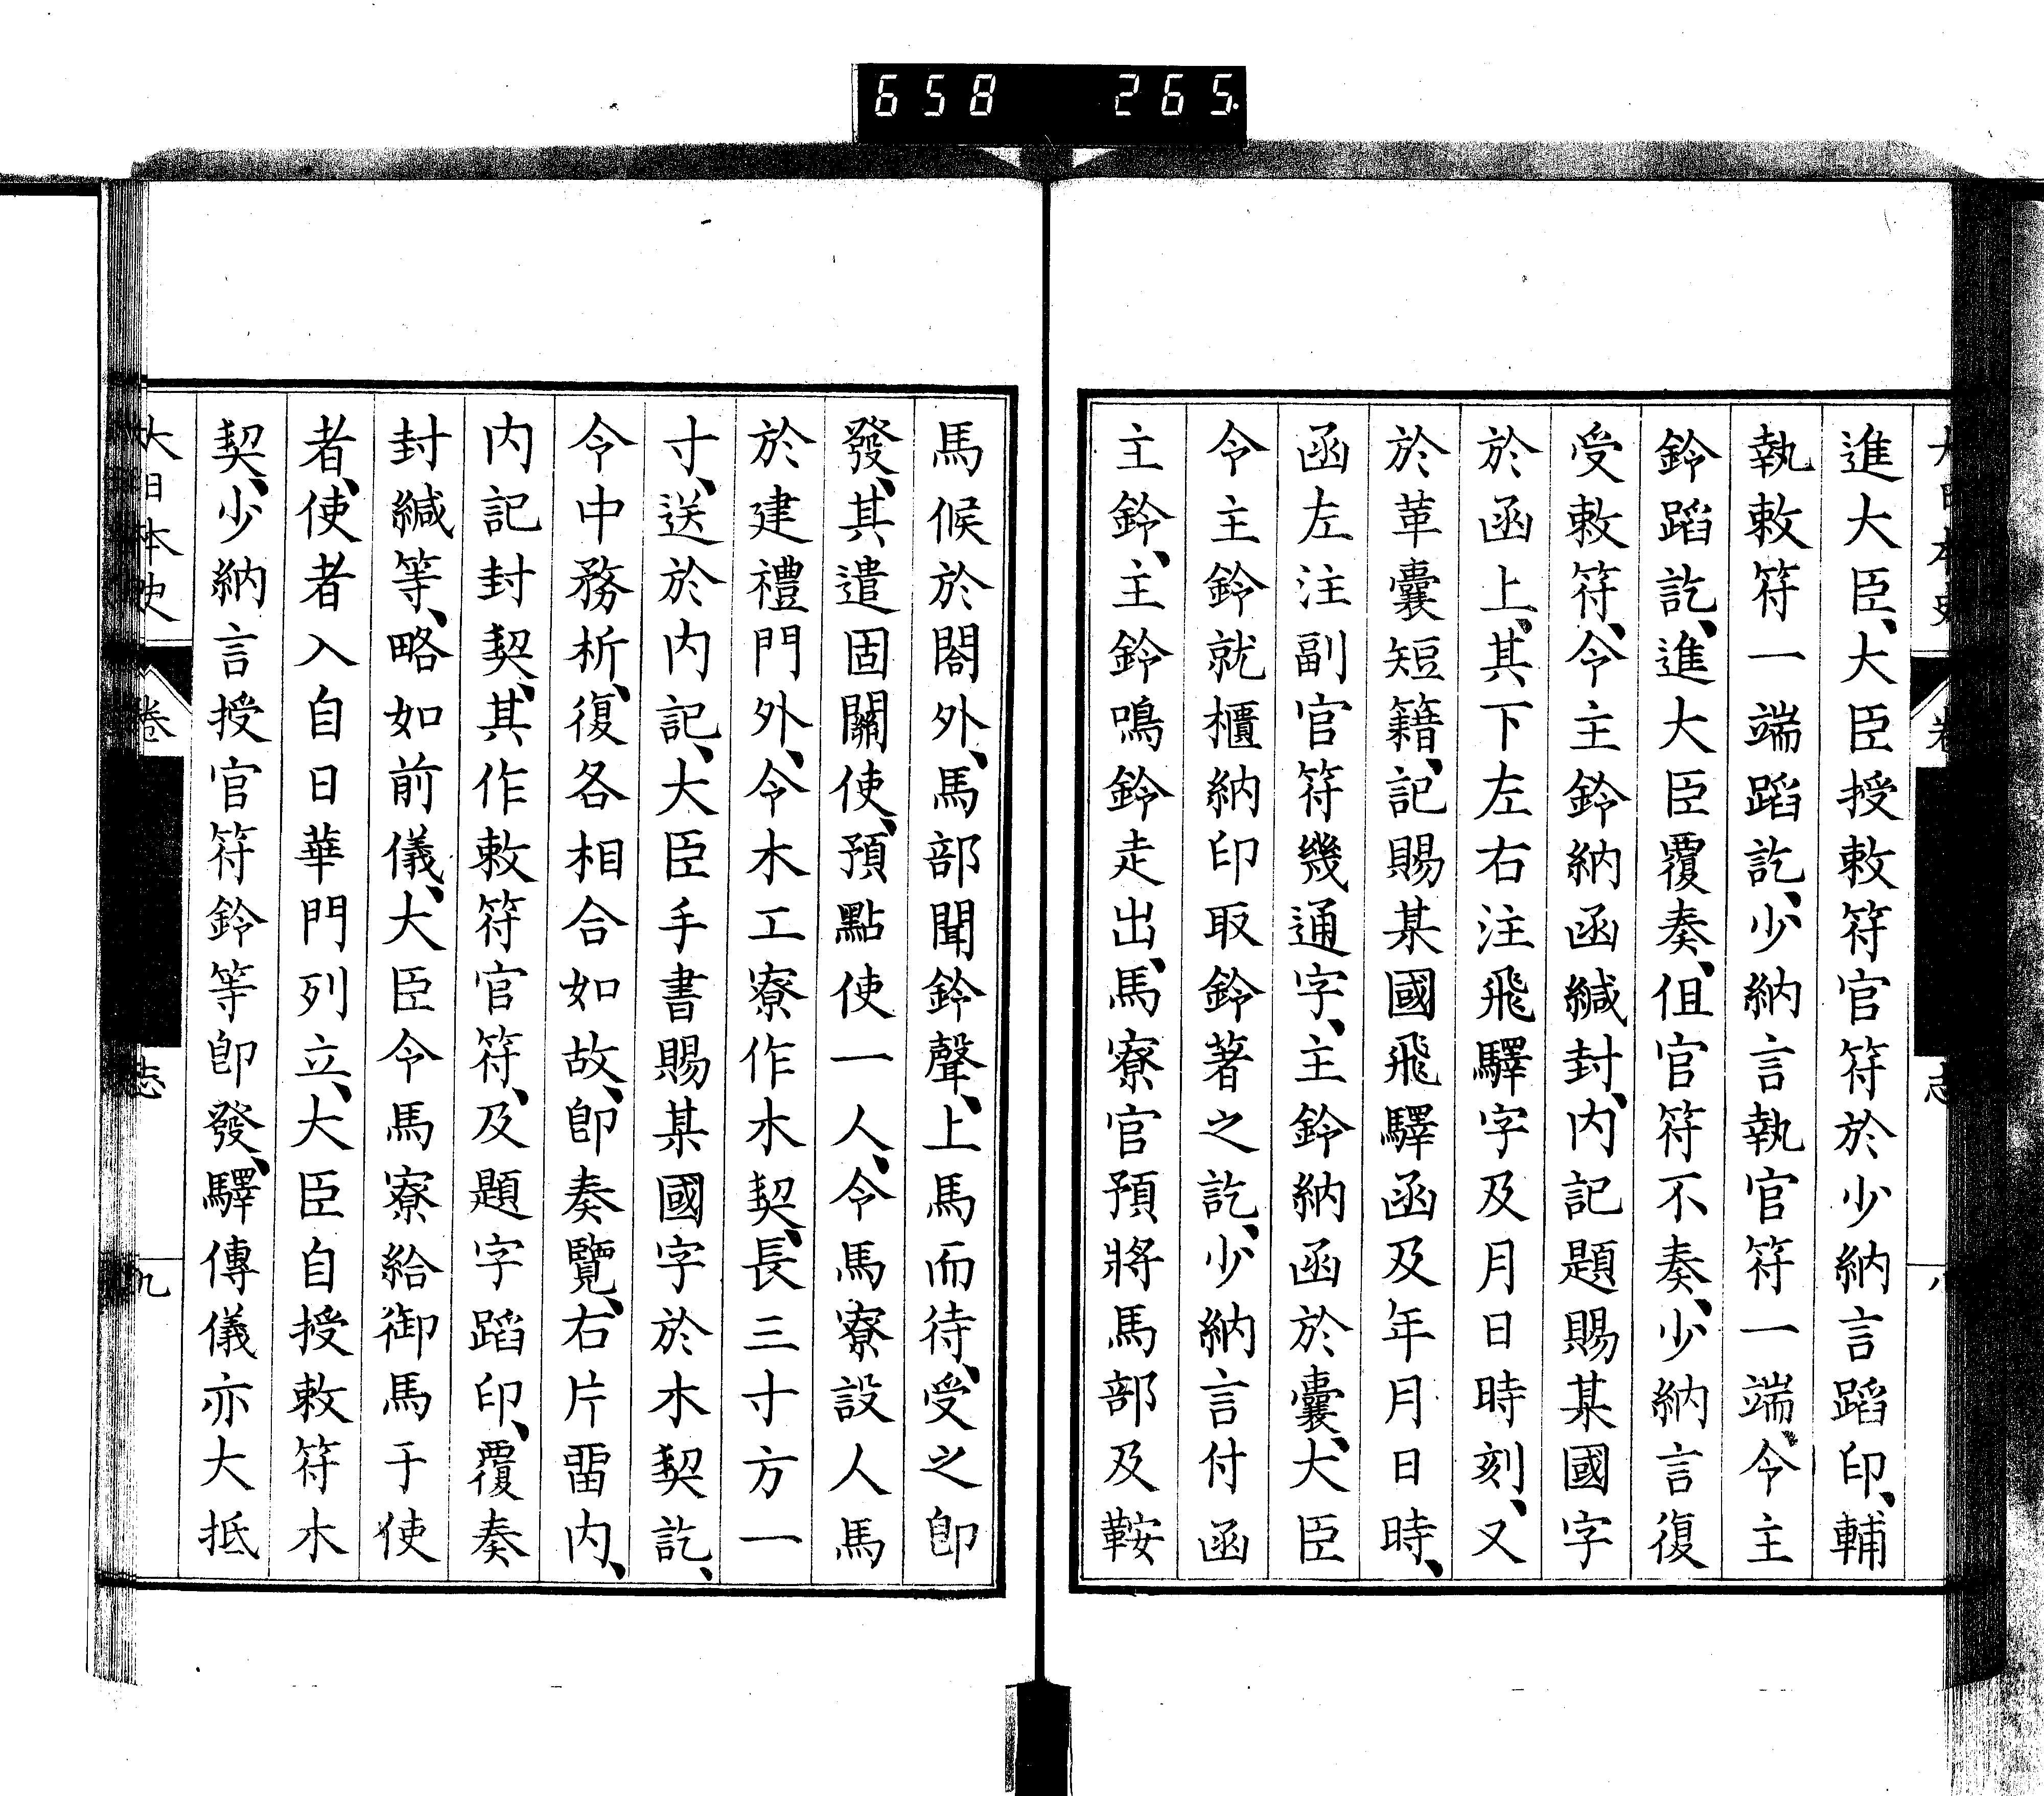 658 265.
進大臣、大臣授敕符官符於少納言蹈印、輔
執敕符一端蹈訖、少納言執官符一端、令主
鈴蹈訖、進大臣覆奏、伹官符不奏、少納言復
受敕符、令主鈴納函緘封、内記題賜某國字
於函上、其下左右注飛驛字及月日時刻、又
於革囊短籍、記賜某國飛驛函及年月日時、
函左注副官符幾通字、主鈴納函於囊、大臣
令主鈴就櫃納印取鈴著之訖、少納言付函
主鈴、主鈴鳴鈴走出、馬寮官預將馬部及鞍
馬候於閤外、馬部聞鈴聲、上馬而待、受之卽
發、其遣固關使、預點使一人、令馬寮設人馬
於建禮門外、令木工寮作木契、長三寸方一
寸、送於内記、大臣手書賜某國字於木契訖、
令中務析、復各相合如故、卽奏覽、右片畱内、
内記封契、其作敕符官符、及題字蹈印、覆奏
封緘等、略如前儀、大臣令馬寮給御馬于使
者、使者入自日華門列立、大臣自授敕符木
契、少納言授官符鈴等卽發、驛傳儀亦大抵
大日本史 卷 志 九